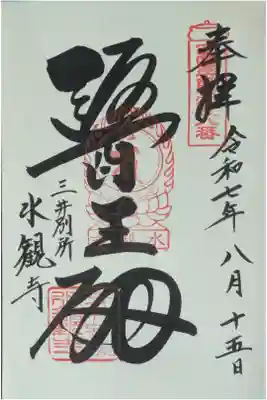 奉拝
令和七年八月十五日
醫王殿
三井別所
水観寺